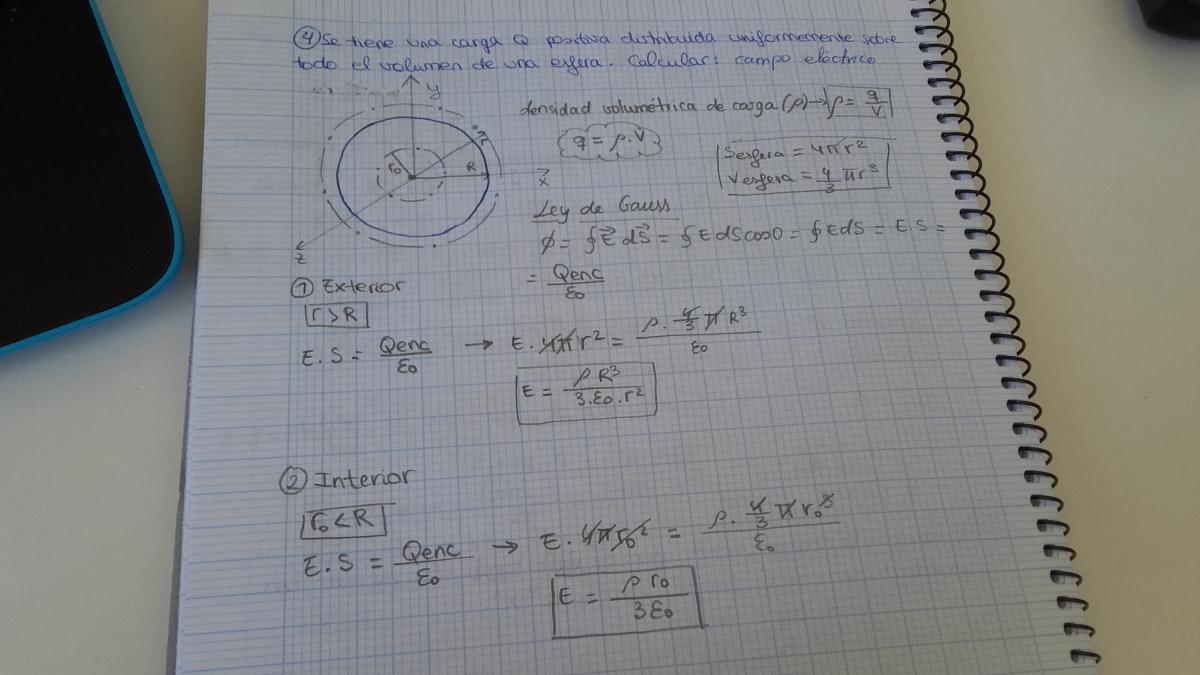 ④ Se tiene una carga Q positiva distribuida uniformemente sobre
todo el volumen de una esfera. Calcular: campo eléctrico
y
r
r₀
R
x
z
densidad volumétrica de carga (ρ) → ρ = q/V
q = ρ.V
Sesfera = 4πr²
Vesfera = 4/3 πr³
Ley de Gauss
φ = ∮E⃗ dS⃗ = ∮E dS cos0 = ∮EdS = E.S =
= Qenc/ε₀
① Exterior
r > R
E.S = Qenc/ε₀ → E.4πr² = ρ.4/3 π R³/ε₀
E = ρR³/3.ε₀.r²
② Interior
r₀ < R
E.S = Qenc/ε₀ → E.4πr₀² = ρ.4/3 π r₀³/ε₀
E = ρ r₀/3ε₀